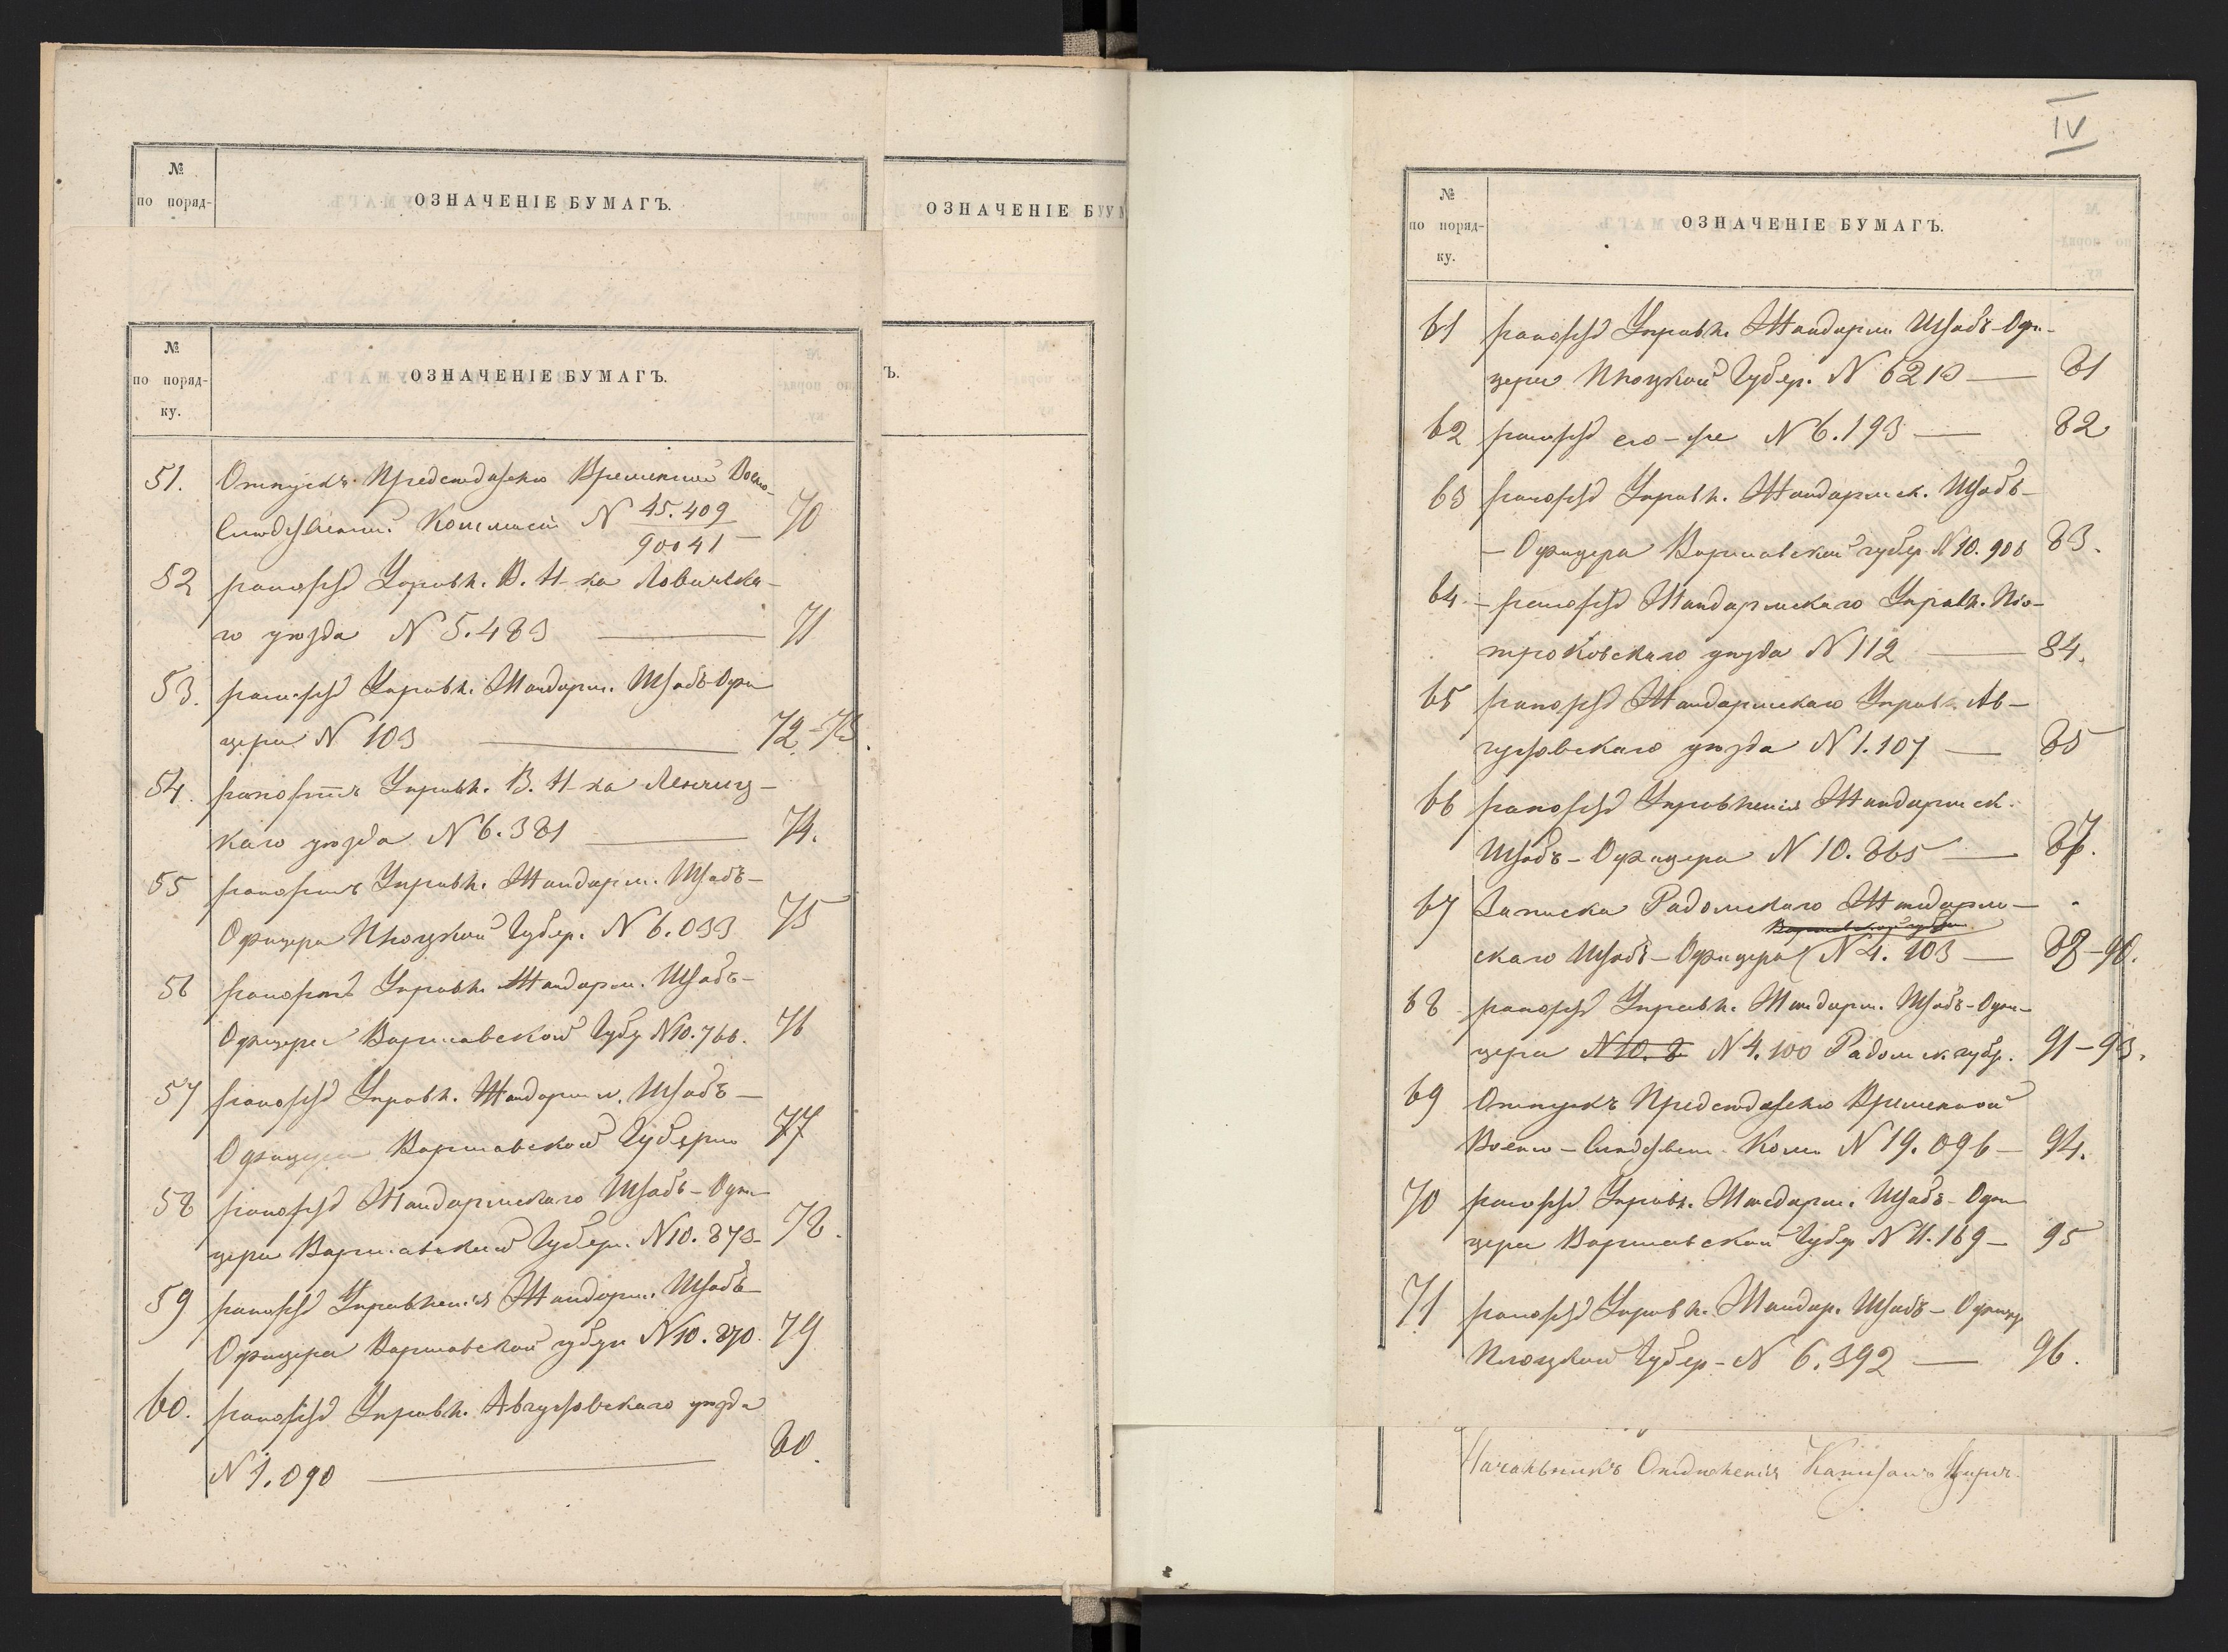 №
по поряд-
ОЗНАЧЕНІЕ БУМАГЪ.
№
по поряд-
ку.
ОЗНАЧЕНІЕ БУМАГЪ.
51. Отпускъ Предсѣдателю Временной Военно-
Слѣдственной Коммисіи N 45.409 / 90041 — 70
52 рапортъ Управл. В. Н-ка Ловичска-
го уѣзда N 5.483 — 71
53. рапортъ Управл. Жандарм. Штабъ-Офи
цера N 103 — 72-73.
54. рапортъ Управл. В. Н-ка Ленчиц-
каго уѣзда N 6.381 — 74.
55 рапортъ Управл. Жандарм. Штабъ-
Офицера Плоцкой Губер. N 6.033 75
56 рапортъ Управл. Жандарм. Штабъ-
Офицера Варшавской Губ. N 10.766. 76
57 рапортъ Управл. Жандарм. Штабъ-
Офицера Варшавской Губерніи 77
58 рапортъ Жандармскаго Штабъ-Офи-
цера Варшавской Губерн. N 10.873- 78.
59 рапортъ Управленія Жандарм. Штабъ-
Офицера Варшавской губерн N 10.870. 79
60. рапортъ Управл. Августовскаго уѣзда
N 1.090 — 80.
ОЗНАЧЕНІЕ БУМ
Ъ.
IV
№
по поряд-
ку.
ОЗНАЧЕНІЕ БУМАГЪ.
61 рапортъ Управл. Жандарм Штабъ-Офи-
цера Плоцкой Губер. N 6210 — 81
62 рапортъ его-же N 6.193 — 82
63 рапортъ Управл. Жандармск. Штабъ-
- Офицера Варшавской губер N 10.906 83.
64 - рапортъ Жандармскаго Управл. Піо-
трковскаго уѣзда N 112 — 84.
65 рапортъ Жандармскаго Управл. Ав-
густовскаго уѣзда N 1.107 — 85
66 рапортъ Управленія Жандармск.
Штабъ-Офицера N 10.865 — 87.
67 Записка Радомскаго Жандарм-
Варшавской губерн
скаго Штабъ-Офицера N 4.103 — 88-90.
68 рапортъ Управл. Жандарм. Штабъ-Офи-
цера N 10.8 N 4.100 Радомск губ. 91-93.
69 Отпускъ Предсѣдателю Временной
Военно-Слѣдствен. Комм N 19.096 — 94.
70 рапортъ Управл. Жандарм. Штабъ-Офи
цера Варшавской Губер N 11.169 — 95
71 рапортъ Управл. Жандар. Штабъ-Офицер
Плоцкой Губер- N 6.392 — 96.
Начальникъ Отдѣленія Капитанъ